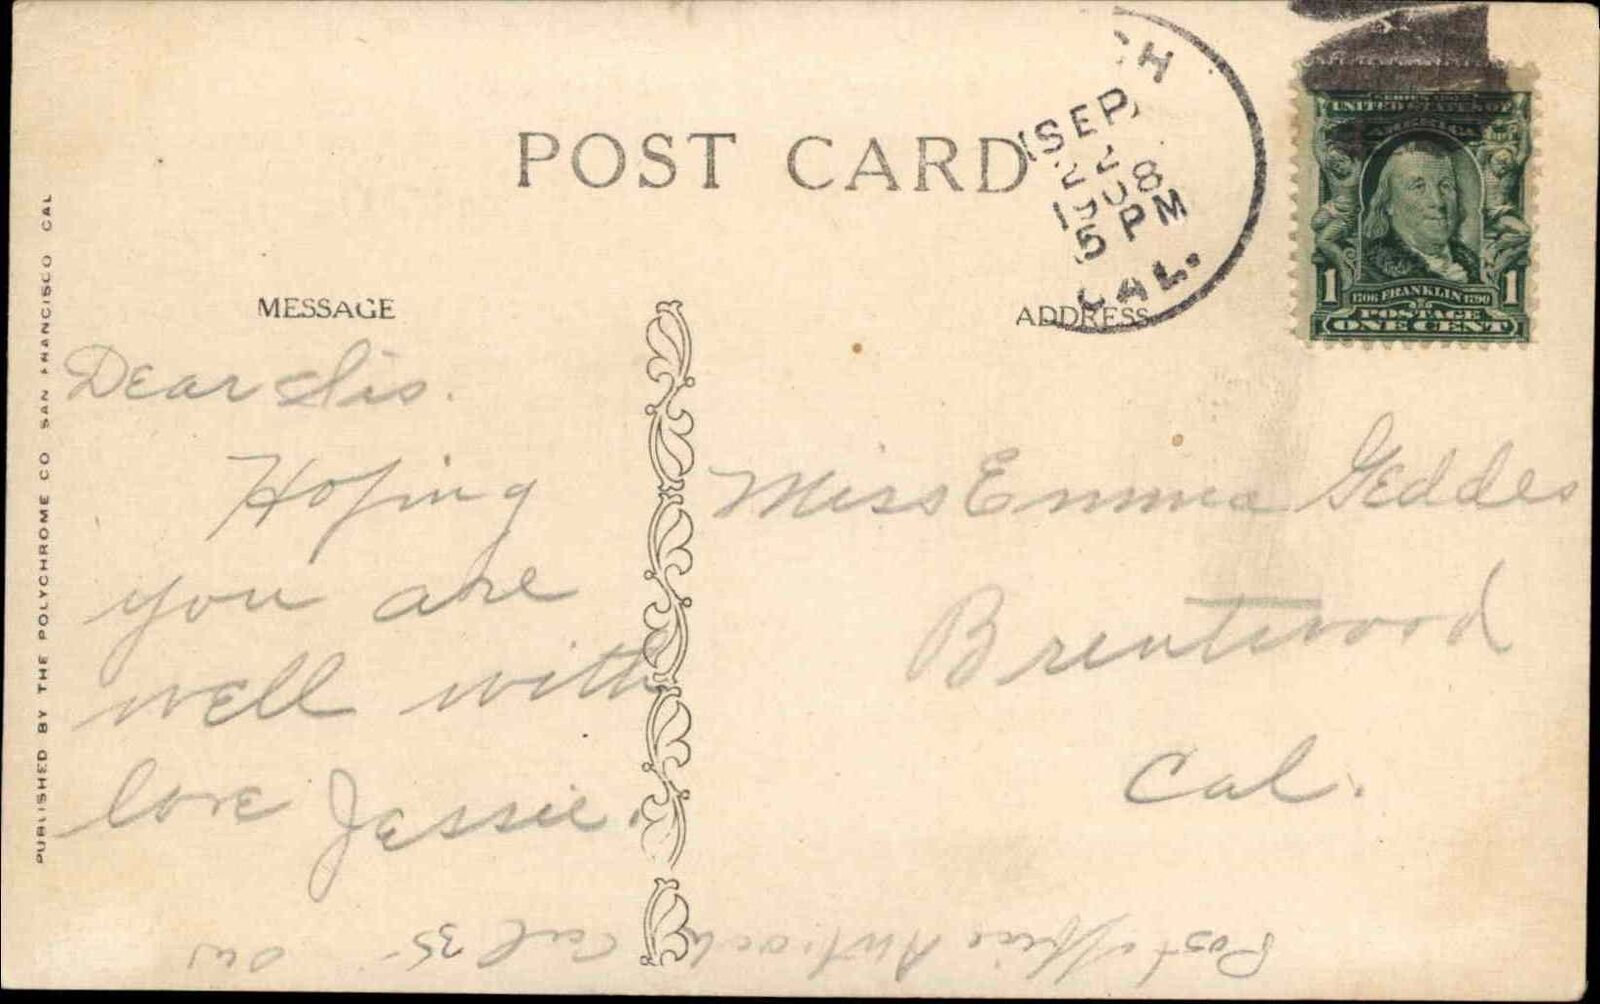 POST CARD
CH
SEP
22
1908
5 PM
CAL.
UNITED STATES OF
AMERICA
1 1706 FRANKLIN 1790 1
POSTAGE
ONE CENT
MESSAGE
ADDRESS
Dear Sis.
Hoping
you are
well with
love Jessie.
Miss Emma Geddes
Brentwood
Cal.
PUBLISHED BY THE POLYCHROME CO SAN FRANCISCO CAL
Post Office Antioch Cal 35